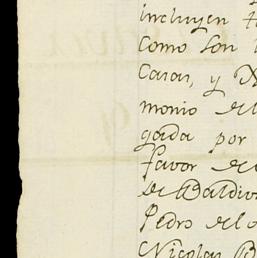 incluyen
como son
Casas, y
monio de
gada por
favor de
de Valdiv
Pedro del
Nicolas